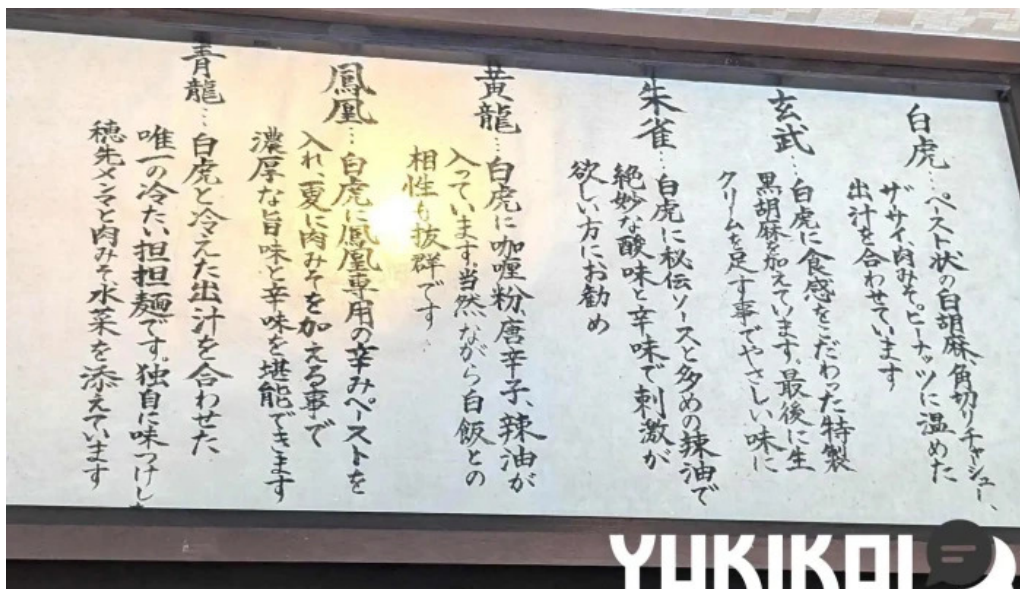 白虎…ペースト状の白胡麻、角切りチャーシュー、
ザーサイ、肉みそ。ピーナッツに温めた
出汁を合わせています
玄武…白虎に食感をこだわった特製
黒胡麻を加えています。最後に生
クリームを足す事でやさしい味に
朱雀…白虎に秘伝ソースと多めの辣油で
絶妙な酸味と辛味で刺激が
欲しい方にお勧め
黄龍…白虎に咖喱粉、唐辛子、辣油が
入っています。当然ながら白飯との
相性も抜群です
鳳凰…白虎に鳳凰専用の辛みペーストを
入れ、更に肉みそを加える事で
濃厚な旨味と辛味を堪能できます
青龍…白虎と冷えた出汁を合わせた
唯一の冷たい担担麺です。独自に味つけし
穂先メンマと肉みそ、水菜を添えています
YUKIKAI